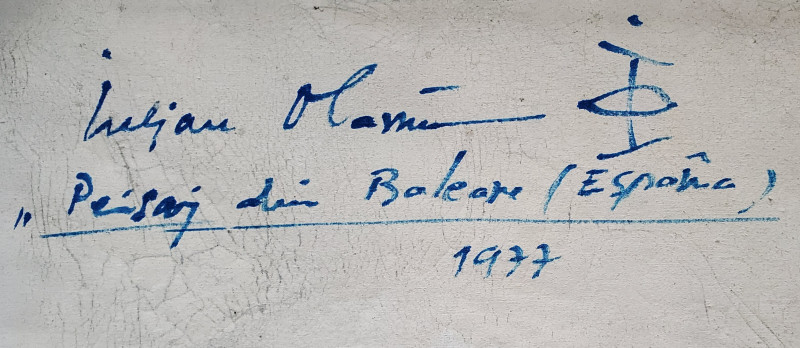 Iulian Olariu
„Peisaj din Baleare (España)
1977